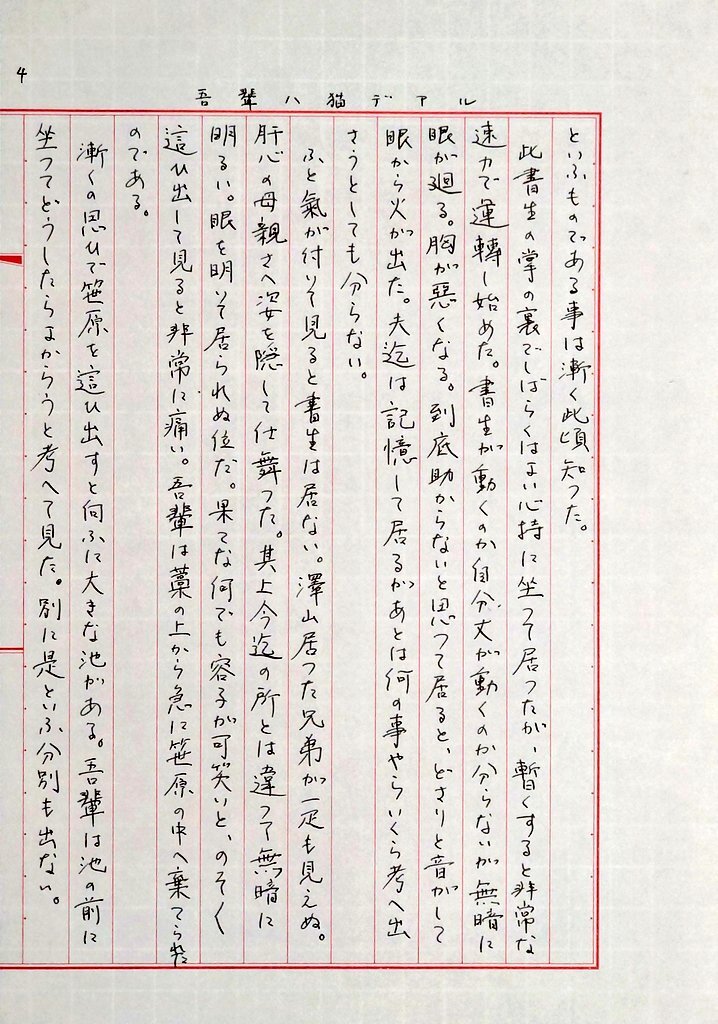 4
吾輩ハ猫デアル
といふものである事は漸く此頃知つた。
此書生の掌の裏でしばらくはよい心持に坐つて居つたが、暫くすると非常な
速力で運轉し始めた。書生が動くのか自分丈が動くのか分らないが無暗に
眼が廻る。胸が惡くなる。到底助からないと思つて居ると、どさりと音がして
眼から火が出た。夫迄は記憶して居るがあとは何の事やらいくら考へ出
さうとしても分らない。
ふと氣が付いて見ると書生は居ない。澤山居つた兄弟が一疋も見えぬ。
肝心の母親さへ姿を隱して仕舞つた。其上今迄の所とは違つて無暗に
明るい。眼を明いて居られぬ位だ。果てな何でも容子が可笑いと、のそ〱
這ひ出して見ると非常に痛い。吾輩は藁の上から急に笹原の中へ棄てられた
のである。
漸くの思ひで笹原を這ひ出すと向ふに大きな池がある。吾輩は池の前に
坐つてどうしたらよからうと考へて見た。別に是といふ分別も出ない。